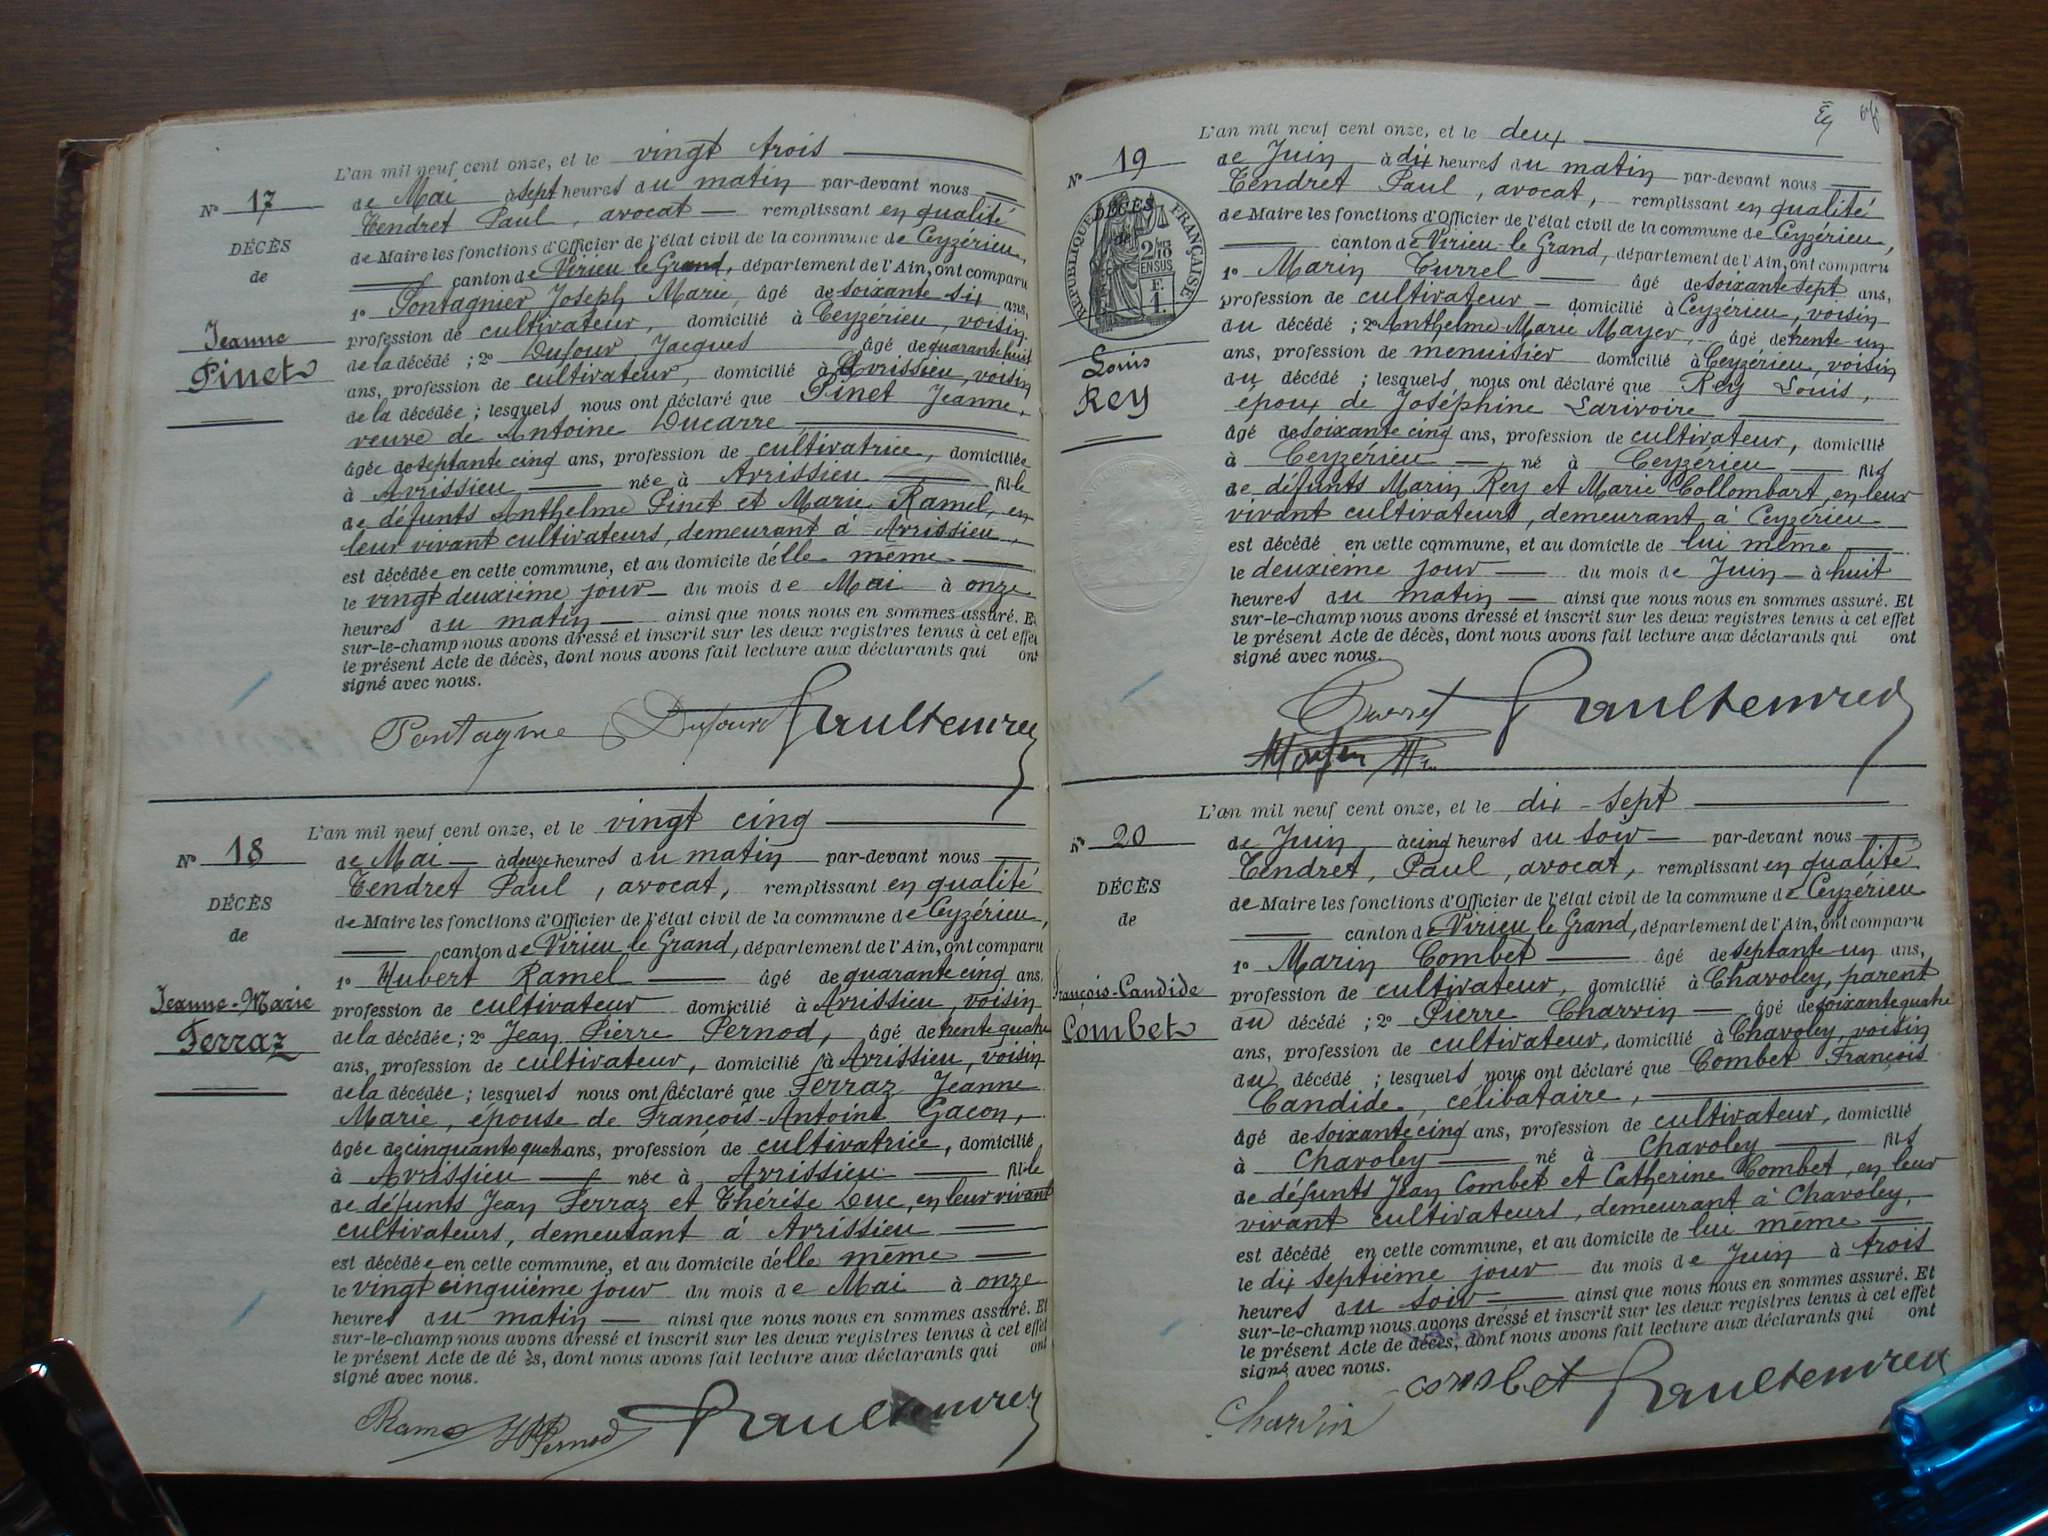 L'an mil neuf cent onze, et le vingt trois
de Mai à sept heures du matin par-devant nous
Tendret Paul, avocat remplissant en qualité
de Maire les fonctions d'Officier de l'état civil de la commune de Ceyzérieu,
canton de Virieu le Grand, département de l'Ain, ont comparu
1° Pontagnier Joseph Marie, âgé de soixante six ans,
profession de cultivateur, domicilié à Ceyzérieu, voisin
de la décédé ; 2° Dufour Jacques âgé de quarante huit
ans, profession de cultivateur, domicilié à Avrissieu, voisin
de la décédée ; lesquels nous ont déclaré que Pinet Jeanne,
veuve de Antoine Ducarre
âgée de septante cinq ans, profession de cultivatrice, domiciliée
à Avrissieu née à Avrissieu fille
de défunts Anthelme Pinet et Marie Ramel, en
leur vivant cultivateurs, demeurant à Avrissieu,
est décédée en cette commune, et au domicile d'élle même
le vingt deuxiéme jour du mois de Mai à onze
heures du matin ainsi que nous nous en sommes assuré. Et
sur-le-champ nous avons dressé et inscrit sur les deux registres tenus à cet effet
le présent Acte de décès, dont nous avons fait lecture aux déclarants qui ont
signé avec nous.
N° 17
DÉCÈS
de
Jeanne
Pinet
Pontagnie Dufour Paul Tendret
L'an mil neuf cent onze, et le vingt cinq
de Mai à douze heures du matin par-devant nous
Tendret Paul, avocat, remplissant en qualité
de Maire les fonctions d'Officier de l'état civil de la commune de Ceyzérieu,
canton de Virieu le Grand, département de l'Ain, ont comparu
1° Hubert Ramel âgé de quarante cinq ans,
profession de cultivateur domicilié à Avrissieu, voisin
de la décédée ; 2° Jean Pierre Pernod, âgé de trente quatre
ans, profession de cultivateur, domicilié à Avrissieu, voisin
de la décédée ; lesquels nous ont déclaré que Ferraz Jeanne
Marie, épouse de François-Antoine Gacon,
âgée de cinquante quatre ans, profession de cultivatrice, domicilié
à Avrissieu née à Avrissieu fille
de défunts Jean Ferraz et Thérése Duc, en leur vivant
cultivateurs, demeurant à Avrissieu
est décédée en cette commune, et au domicile d'élle même
le vingt cinquiéme jour du mois de Mai à onze
heures du matin ainsi que nous nous en sommes assuré. Et
sur-le-champ nous avons dressé et inscrit sur les deux registres tenus à cet effet
le présent Acte de dé ès, dont nous avons fait lecture aux déclarants qui ont
signé avec nous.
N° 18
DÉCÈS
de
Jeanne-Marie
Ferraz
Ramel Pernod Paul Tendret
L'an mil neuf cent onze, et le deux
de Juin à dix heures du matin par-devant nous
Tendret Paul, avocat, remplissant en qualité
de Maire les fonctions d'Officier de l'état civil de la commune de Ceyzérieu,
canton de Virieu-le Grand, département de l'Ain, ont comparu
1° Marin Turrel âgé de soixante sept ans,
profession de cultivateur domicilié à Ceyzérieu, voisin
du décédé ; 2° Anthelme-Marie Mayer, âgé de trente un
ans, profession de menuisier domicilié à Ceyzérieu, voisin
du décédé ; lesquels nous ont déclaré que Rey Louis,
époux de Joséphine Larivoire
âgé de soixante cinq ans, profession de cultivateur, domicilié
à Ceyzérieu, né à Ceyzérieu fils
de défunts Marin Rey et Marie Collombart, en leur
vivant cultivateurs, demeurant à Ceyzérieu
est décédé en cette commune, et au domicile de lui même
le deuxiéme jour du mois de Juin à huit
heures du matin ainsi que nous nous en sommes assuré. Et
sur-le-champ nous avons dressé et inscrit sur les deux registres tenus à cet effet
le présent Acte de décès, dont nous avons fait lecture aux déclarants qui ont
signé avec nous.
N° 19
DÉCÈS
de
RÉPUBLIQUE FRANÇAISE
Louis
Rey
Paul Tendret
L'an mil neuf cent onze, et le dix-sept
de Juin à cinq heures du soir par-devant nous
Tendret, Paul, avocat, remplissant en qualité
de Maire les fonctions d'Officier de l'état civil de la commune de Ceyzérieu
canton de Virieu le Grand, département de l'Ain, ont comparu
1° Marin Combet âgé de septante un ans,
profession de cultivateur, domicilié à Chavoley, parent
du décédé ; 2° Pierre Charvin âgé de soixante quatre
ans, profession de cultivateur, domicilié à Chavoley, voisin
du décédé ; lesquels nous ont déclaré que Combet François
Candide, célibataire,
âgé de soixante cinq ans, profession de cultivateur, domicilié
à Chavoley né à Chavoley fils
de défunts Jean Combet et Catherine Combet, en leur
vivant cultivateurs, demeurant à Chavoley,
est décédé en cette commune, et au domicile de lui même
le dix septiéme jour du mois de Juin à trois
heures du soir ainsi que nous nous en sommes assuré. Et
sur-le-champ nous avons dressé et inscrit sur les deux registres tenus à cet effet
le présent Acte de décès, dont nous avons fait lecture aux déclarants qui ont
signé avec nous.
N° 20
DÉCÈS
de
François-Candide
Combet
Charvin combet Paul Tendret